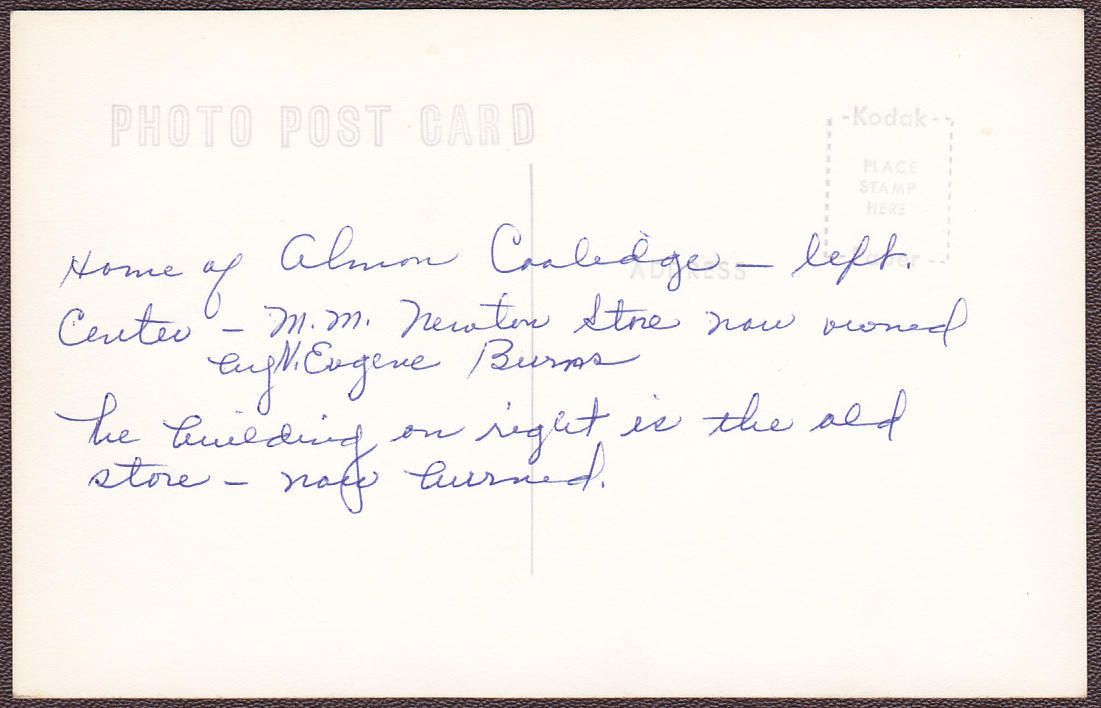 PHOTO POST CARD
-Kodak-
PLACE
STAMP
HERE
Paper
ADDRESS
Home of Almon Cooledge - left.
Center - M.M. Newton Store now owned
by N. Eugene Burns
The building on right is the old
store - now burned.